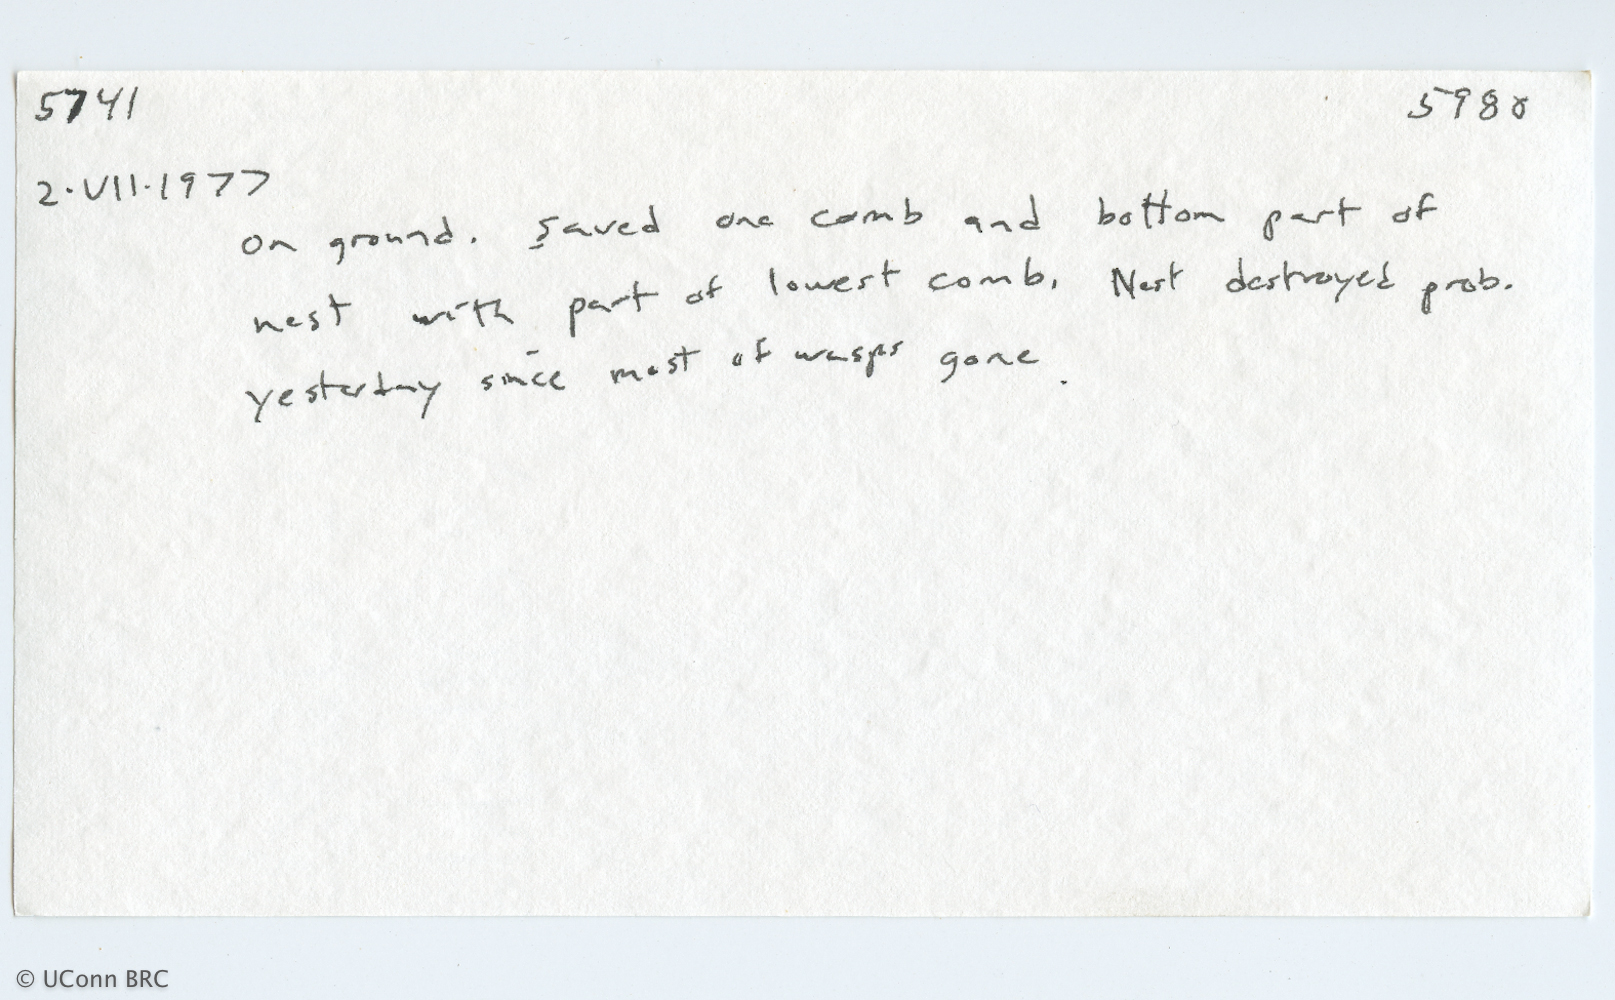 5741 5980
2·VII·1977
on ground. Saved one comb and bottom part of
nest with part of lowest comb. Nest destroyed prob.
yesterday since most of wasps gone.
© UConn BRC